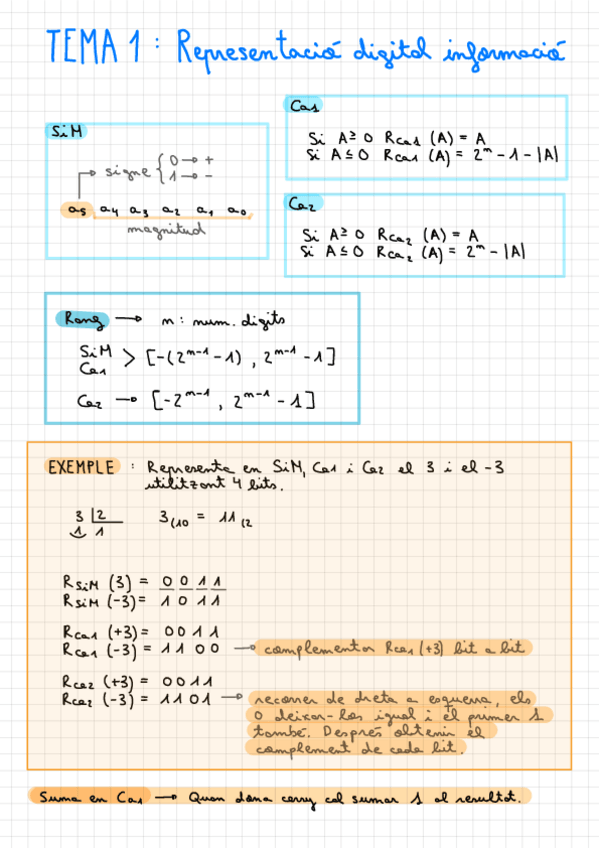 TEMA 1 : Representació digital informació
SiM
signe { 0 → +
1 → -
a5 a4 a3 a2 a1 a0
magnitud
Ca1
Si A ≥ 0 RCa1 (A) = A
Si A ≤ 0 RCa1 (A) = 2^n - 1 - |A|
Ca2
Si A ≥ 0 RCa2 (A) = A
Si A ≤ 0 RCa2 (A) = 2^n - |A|
Rang → n : num. digits
SiM
Ca1 > [-(2^n-1 - 1) , 2^n-1 - 1]
Ca2 → [-2^n-1 , 2^n-1 - 1]
EXEMPLE : Representa en SiM, Ca1 i Ca2 el 3 i el -3
utilitzant 4 bits.
3 |2 3(10 = 11(2
1 1
RSiM (3) = 0 0 1 1
RSiM (-3) = 1 0 1 1
RCa1 (+3) = 0 0 1 1
RCa1 (-3) = 1 1 0 0 → complementar RCa1 (+3) bit a bit
RCa2 (+3) = 0 0 1 1
RCa2 (-3) = 1 1 0 1 → recorrer de dreta a esquerra, els
0 deixar-los igual i el primer 1
també. Després obtenir el
complement de cada bit.
Suma en Ca1 → Quan dona carry cal sumar 1 al resultat.